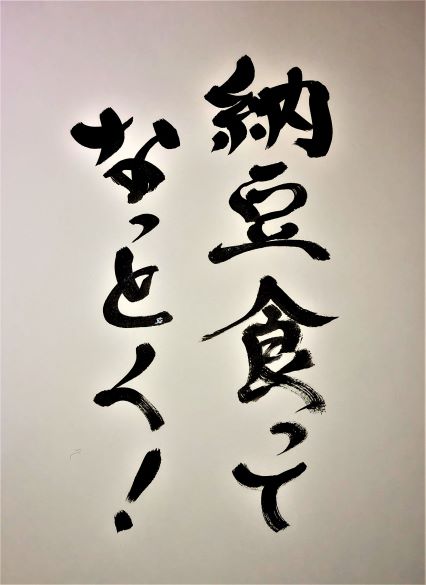 納豆食って
なっとく！